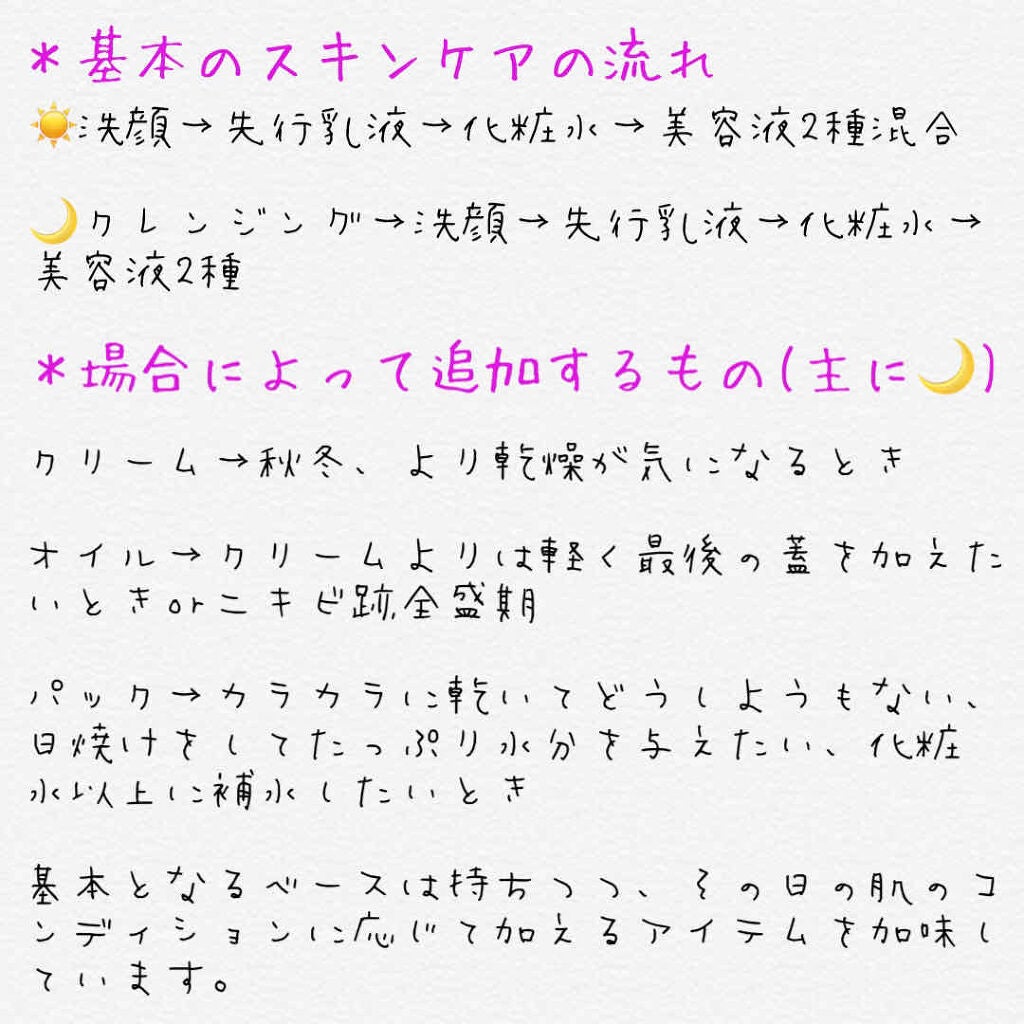 *基本のスキンケアの流れ
☀️洗顔→先行乳液→化粧水→美容液2種混合
🌙クレンジング→洗顔→先行乳液→化粧水→
美容液2種
*場合によって追加するもの(主に🌙)
クリーム→秋冬、より乾燥が気になるとき
オイル→クリームよりは軽く最後の蓋を加えた
いときorニキビ跡全盛期
パック→カラカラに乾いてどうしようもない、
日焼けをしてたっぷり水分を与えたい、化粧
水以上に補水したいとき
基本となるベースは持ちつつ、その日の肌のコ
ンディションに応じて加えるアイテムを加味し
ています。